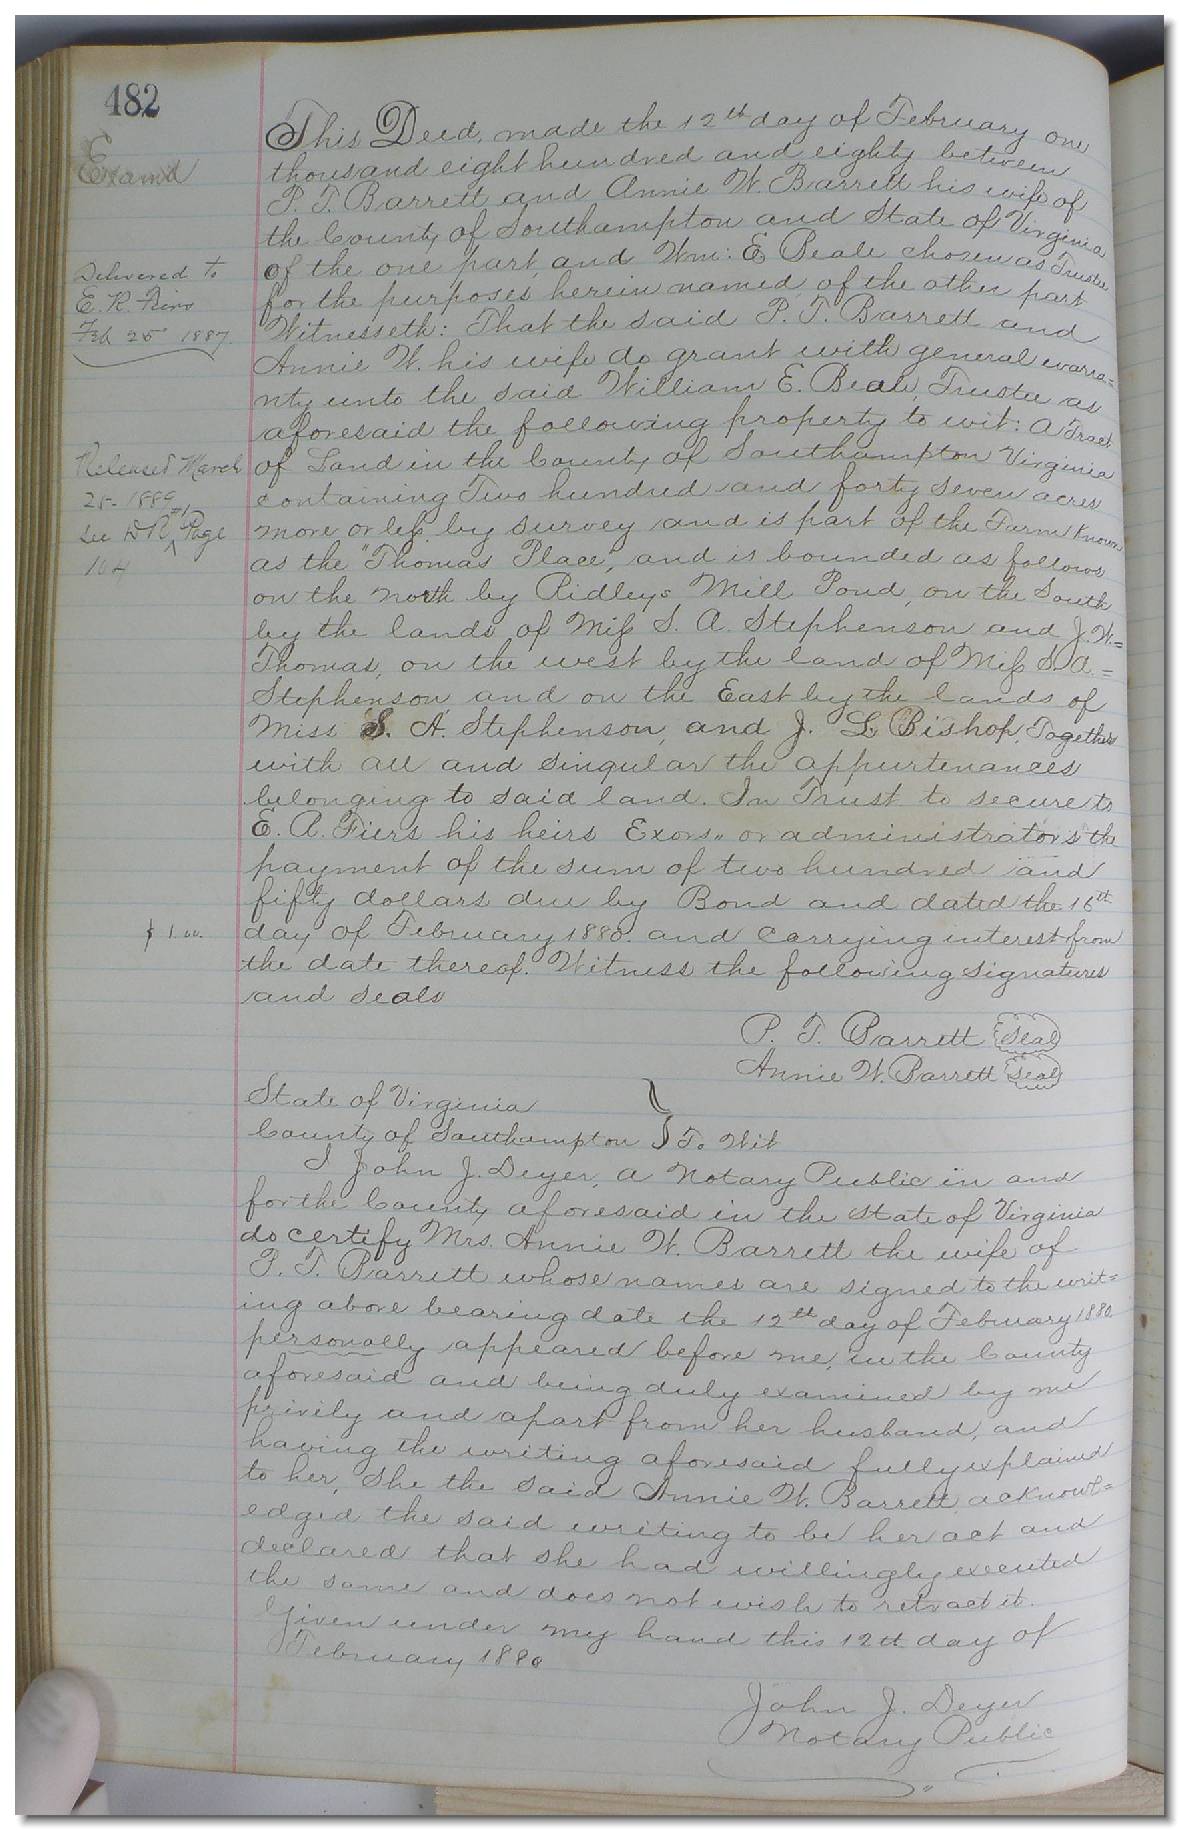 482
Examd
This Deed, made the 12th day of February one
thousand eight hundred and eighty between
P. T. Barrett and Annie W. Barrett his wife of
the County of Southampton and State of Virginia
of the one part, and Wm: E. Beale chosen as Trustee
for the purposes herein named, of the other part
Witnesseth: That the said P. T. Barrett and
Annie W. his wife do grant with general warra=
nty unto the said William E. Beale, Trustee as
aforesaid the following property to wit: A Tract
of Land in the County of Southampton Virginia
containing Two hundred and forty seven acres
more or less by survey and is part of the Farm known
as the "Thomas Place", and is bounded as follows
on the north by Ridleys Mill Pond, on the South
by the lands of Miss S. A. Stephenson and J. W.=
Thomas, on the west by the land of Miss S. A.=
Stephenson, and on the East by the lands of
Miss S. A. Stephenson, and J. L. Bishop, Together
with all and singular the appurtenances
belonging to said land. In Trust to secure to
E. R. Fiers his heirs Exors,, or administrators the
payment of the sum of two hundred and
fifty dollars due by Bond and dated the 16th
day of February 1880. and carrying interest from
the date thereof. Witness the following signatures
and seals
P. T. Barrett Seal
Annie W. Barrett Seal
Delivered to
E. R.
Feb 25 1887.
Released March
25- 188
See DR #1 Page
104
$ 1.00.
State of Virginia
County of Southampton } To Wit
I John J. Deyer, a Notary Public in and
for the County aforesaid in the State of Virginia
do certify Mrs. Annie W. Barrett the wife of
P. T. Barrett whose names are signed to the writ=
ing above bearing date the 12th day of February 1880
personally appeared before me, in the County
aforesaid and being duly examined by me
privily and apart from her husband, and
having the writing aforesaid fully explained
to her, She the said Annie W. Barrett acknowl=
edged the said writing to be her act and
declared that she had willingly executed
the same and does not wish to retract it.
Given under my hand this 12th day of
February 1880
John J. Deyer
Notary Public